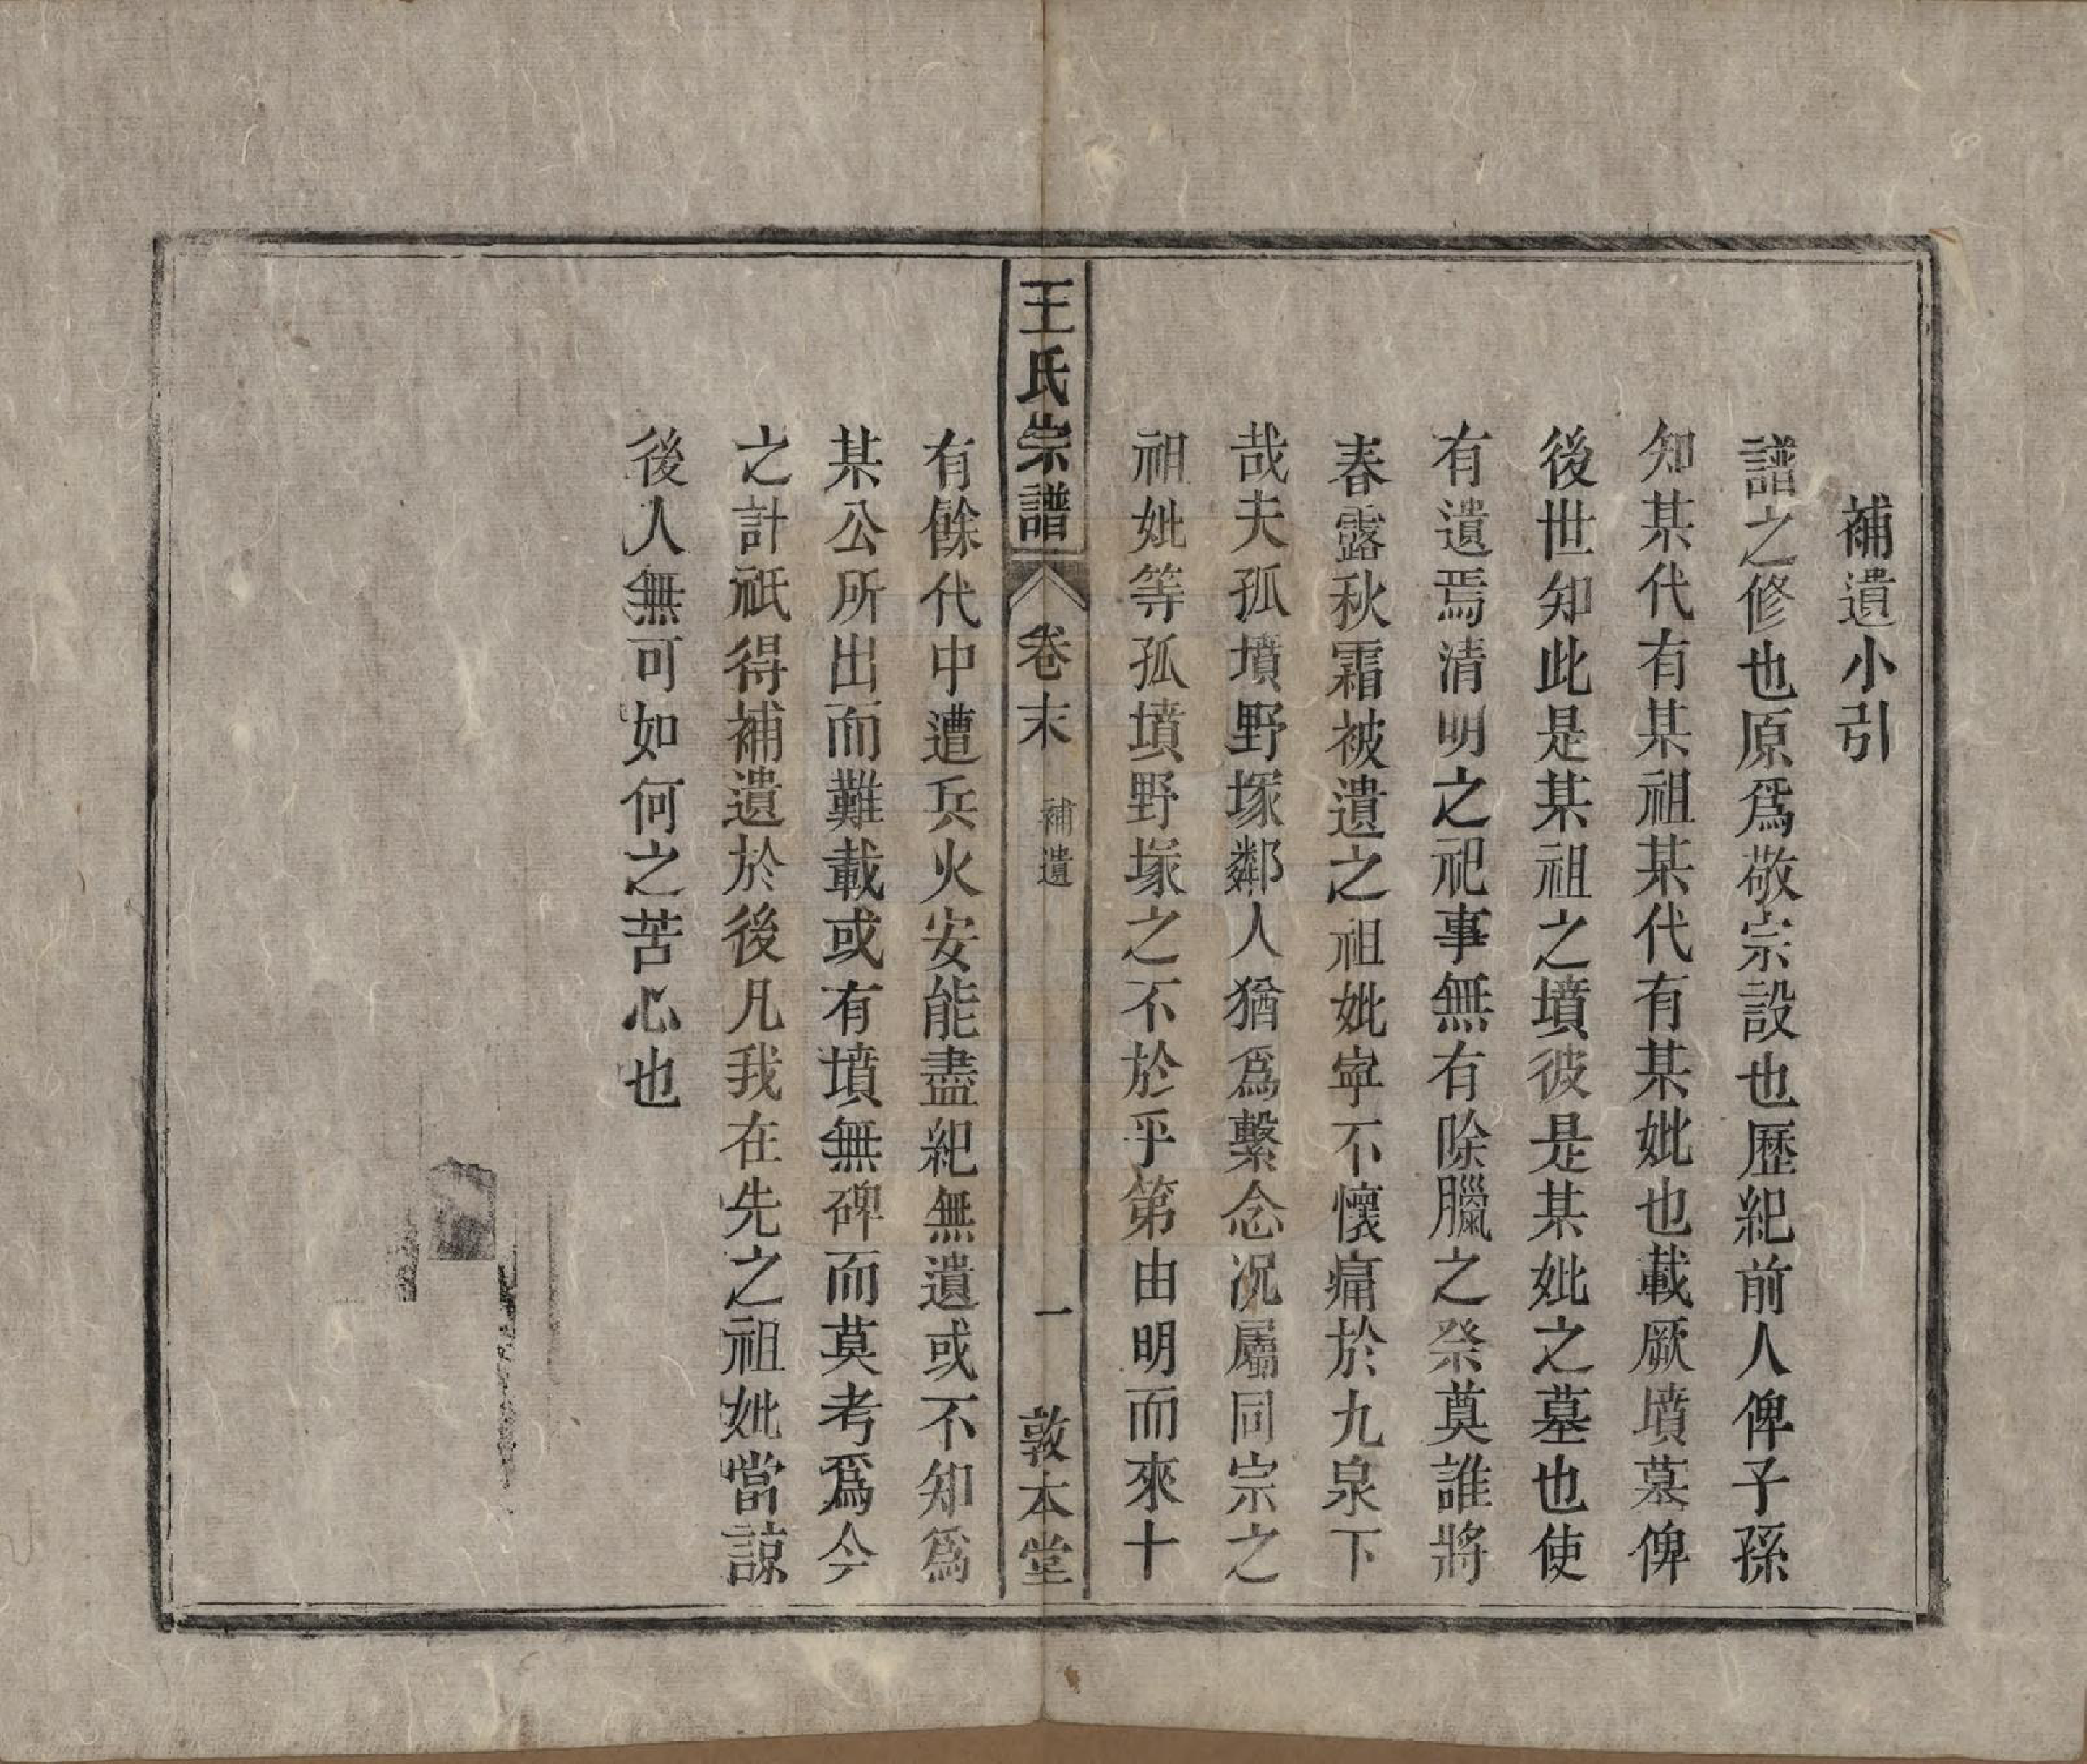 補遺小引
譜之修也原爲敬宗設也歷紀前人俾子孫
知某代有某祖某代有某妣也載厥墳墓俾
後世知此是某祖之墳彼是某妣之墓也使
有遺焉清明之祀事無有除臘之祭奠誰將
春露秋霜被遺之祖妣寧不懷痛於九泉下
哉夫孤墳野塚鄰人猶爲繫念況屬同宗之
祖妣等孤墳野塚之不於乎第由明而來十
王氏宗譜
卷末
補遺
一
敦本堂
有餘代中遭兵火安能盡紀無遺或不知爲
某公所出而難載或有墳無碑而莫考爲今
之計祇得補遺於後凡我在先之祖妣當諒
後人無可如何之苦心也